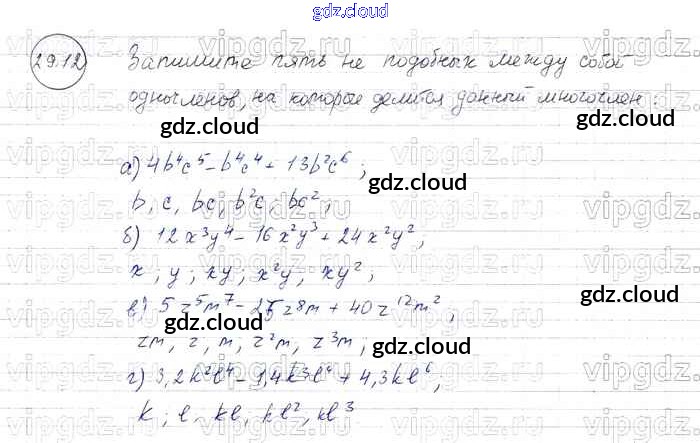 gdz.cloud
29.12 Запишите пять не подобных между собой
одночленов, на которые делится данный многочлен:
gdz.cloud gdz.cloud
а) 4b⁴c⁵ - b⁴c⁴ + 13b²c⁶;
gdz.cloud
b, c, bc, b²c, bc²;
б) 12x³y⁴ - 16x²y³ + 24x²y²;
gdz.cloud
x; y; xy; x²y, xy²;
в) 5z⁵m⁷ - 25z⁸m + 40z¹²m²;
gdz.cloud
zm, z, m, z²m, z³m;
gdz.cloud
г) 3,2k²l⁴ - 1,4k³l⁴ + 4,3kl⁶;
k; l, kl, kl², kl³
gdz.cloud